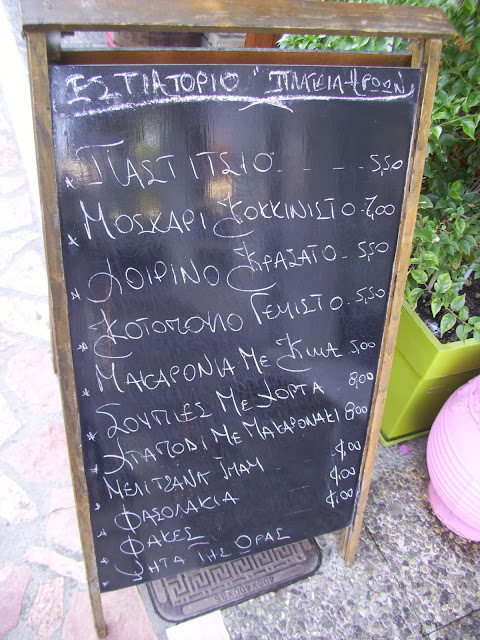 ΕΣΤΙΑΤΟΡΙΟ "ΠΛΑΤΕΙΑ ΗΡΩΩΝ"
* ΠΑΣΤΙΤΣΙΟ - - - - 5,50
* ΜΟΣΧΑΡΙ ΚΟΚΚΙΝΙΣΤΟ - 7,00
* ΧΟΙΡΙΝΟ ΚΡΑΣΑΤΟ - 5,50
* ΚΟΤΟΠΟΥΛΟ ΓΕΜΙΣΤΟ - 5,50
* ΜΑΚΑΡΟΝΙΑ ΜΕ ΚΙΜΑ 5,00
* ΣΟΥΠΙΕΣ ΜΕ ΧΟΡΤΑ 8,00
* ΧΤΑΠΟΔΙ ΜΕ ΜΑΚΑΡΟΝΑΚΙ 8,00
* ΜΕΛΙΤΣΑΝΑ ΙΜΑΜ 4,00
* ΦΑΣΟΛΑΚΙΑ 4,00
* ΦΑΚΕΣ 4,00
* ΠΗΤΑ ΤΗΣ ΩΡΑΣ